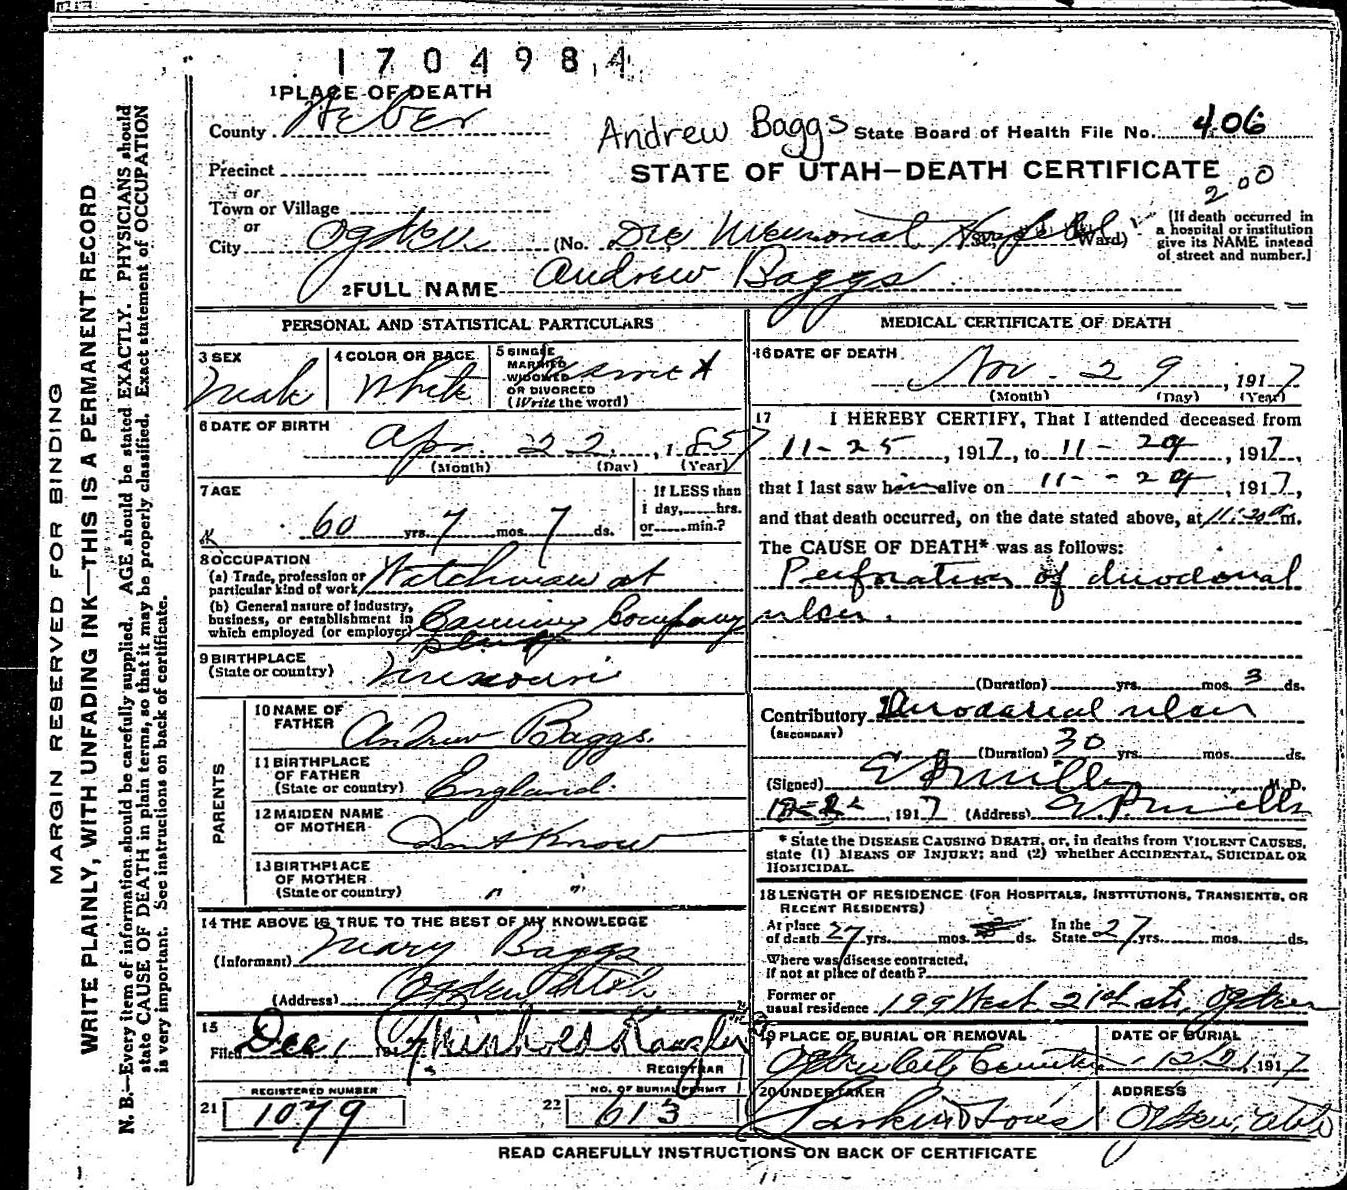 1704984
1 PLACE OF DEATH
County Weber
Andrew Baggs State Board of Health File No. 406
Precinct
STATE OF UTAH—DEATH CERTIFICATE
2 00
or
Town or Village
or
City Ogden (No. Dee Memorial Hospital St. Ward)
[If death occurred in
a hospital or institution
give its NAME instead
of street and number.]
2 FULL NAME Andrew Baggs
PERSONAL AND STATISTICAL PARTICULARS
3 SEX
Male
4 COLOR OR RACE
White
5 SINGLE
MARRIED
WIDOWED
OR DIVORCED
(Write the word)
6 DATE OF BIRTH
Apr. 22, 1857
(Month) (Day) (Year)
7 AGE
60 yrs. 7 mos. 7 ds.
If LESS than
1 day, hrs.
or min.?
8 OCCUPATION
(a) Trade, profession or
particular kind of work Watchman at
(b) General nature of industry,
business, or establishment in
which employed (or employer) Canning Company
plant
9 BIRTHPLACE
(State or country) Missouri
PARENTS
10 NAME OF
FATHER Andrew Baggs.
11 BIRTHPLACE
OF FATHER
(State or country) England.
12 MAIDEN NAME
OF MOTHER Don't Know
13 BIRTHPLACE
OF MOTHER
(State or country) " "
14 THE ABOVE IS TRUE TO THE BEST OF MY KNOWLEDGE
(Informant) Mary Baggs
(Address) Ogden Utah
15
Filed Dec 1, 1917
REGISTRAR
REGISTERED NUMBER
21 1079
NO. OF BURIAL PERMIT
22 613
MEDICAL CERTIFICATE OF DEATH
16 DATE OF DEATH
Nov. 29, 1917
(Month) (Day) (Year)
17 I HEREBY CERTIFY, That I attended deceased from
11-25, 1917, to 11-29, 1917,
that I last saw him alive on 11-29, 1917,
and that death occurred, on the date stated above, at 11:20 a m.
The CAUSE OF DEATH* was as follows:
Perforation of duodenal
ulcer.
(Duration) yrs. mos. 3 ds.
Contributory Duodenal ulcer
(SECONDARY)
(Duration) 30 yrs. mos. ds.
(Signed) M. D.
1917 (Address)
* State the DISEASE CAUSING DEATH, or, in deaths from VIOLENT CAUSES,
state (1) MEANS OF INJURY; and (2) whether ACCIDENTAL, SUICIDAL OR
HOMICIDAL.
18 LENGTH OF RESIDENCE (FOR HOSPITALS, INSTITUTIONS, TRANSIENTS, OR
RECENT RESIDENTS)
At place
of death 27 yrs. mos. ds.
In the
State 27 yrs. mos. ds.
Where was disease contracted,
if not at place of death?
Former or
usual residence 199 West 21st st., Ogden
19 PLACE OF BURIAL OR REMOVAL
Ogden City Cemetery
DATE OF BURIAL
12/2, 1917
20 UNDERTAKER
Larkin & Sons
ADDRESS
Ogden, Utah
READ CAREFULLY INSTRUCTIONS ON BACK OF CERTIFICATE
MARGIN RESERVED FOR BINDING
WRITE PLAINLY, WITH UNFADING INK—THIS IS A PERMANENT RECORD
N. B.—Every item of information should be carefully supplied. AGE should be stated EXACTLY. PHYSICIANS should
state CAUSE OF DEATH in plain terms, so that it may be properly classified. Exact statement of OCCUPATION
is very important. See instructions on back of certificate.